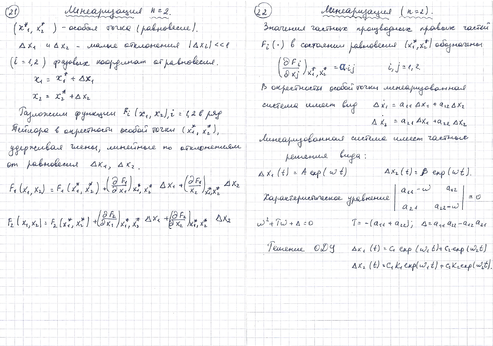 21
Линеаризация n=2.
(x₁*, x₂*) - особая точка (равновесие).
Δx₁ и Δx₂ - малые отклонения |Δxᵢ|<<1
(i=1,2) фазовых координат от равновесия.
x₁ = x₁* + Δx₁
x₂ = x₂* + Δx₂
Разложим функции Fᵢ(x₁,x₂), i=1,2 в ряд
Тейлора в окрестности особой точки (x₁*, x₂*),
удерживая члены, линейные по отклонениям
от равновесия Δx₁, Δx₂.
F₁(x₁,x₂) = F₁(x₁*,x₂*) + (∂F₁/∂x₁)x₁*,x₂* Δx₁ + (∂F₁/∂x₂)x₁*,x₂* Δx₂
F₂(x₁,x₂) = F₂(x₁*,x₂*) + (∂F₂/∂x₁)x₁*,x₂* Δx₁ + (∂F₂/∂x₂)x₁*,x₂* Δx₂
22
Линеаризация (n=2).
Значения частных производных правых частей
Fᵢ(·) в состоянии равновесия (x₁*,x₂*) обозначим
(∂Fᵢ/∂xⱼ)x₁*,x₂* = aᵢⱼ i,j = 1,2
В окрестности особой точки линеаризованная
система имеет вид Δẋ₁ = a₁₁Δx₁ + a₁₂Δx₂
Δẋ₂ = a₂₁Δx₁ + a₂₂Δx₂
Линеаризованная система имеет частное
решение вида:
Δx₁(t) = A exp(wt) Δx₂(t) = B exp(wt).
Характеристическое уравнение | a₁₁-w a₁₂ |
| a₂₁ a₂₂-w | = 0
w² + Tw + Δ = 0 T = -(a₁₁+a₂₂); Δ = a₁₁a₂₂ - a₁₂a₂₁
ОДУ Δx₁(t) = C₁ exp(w₁t) + C₂ exp(w₂t)
Δx₂(t) = C₁K₁ exp(w₁t) + C₂K₂ exp(w₂t).